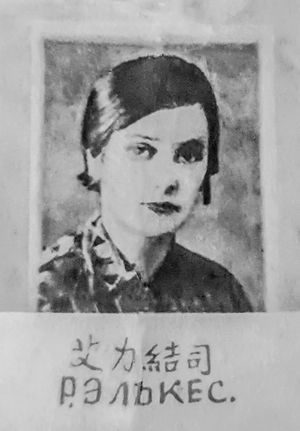 艾力結司
Р.ЭЛЬКЕС.